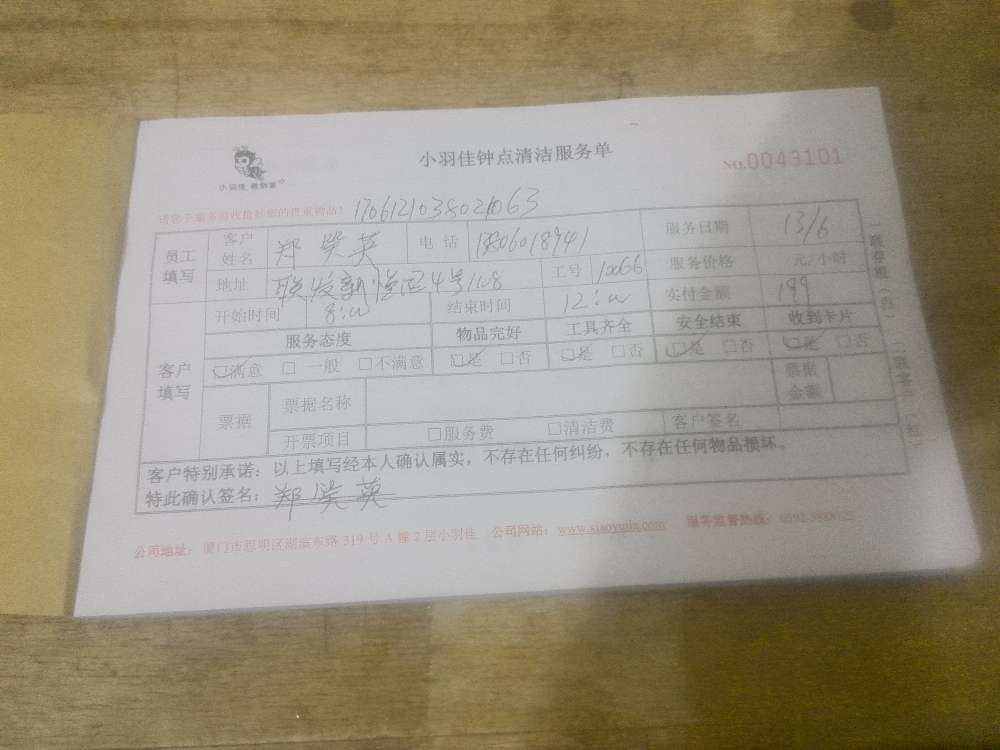 小羽佳钟点清洁服务单
No.0043101
小羽佳 教到家
请您于服务前收拾好您的贵重物品! 170612103802063
员工填写 客户姓名 郑 英 电话 服务日期 13/6
地址 4号 工号 10066 服务价格 元/小时
开始时间 8:00 结束时间 12:00 实付金额 199
客户填写 服务态度 物品完好 工具齐全 安全结束 收到卡片
☑满意 □一般 □不满意 ☑是 □否 ☑是 □否 ☑是 □否 ☑是 □否
票据 票据名称 票据金额
开票项目 □服务费 □清洁费 客户签名
客户特别承诺：以上填写经本人确认属实，不存在任何纠纷，不存在任何物品损坏。
特此确认签名：郑 英
公司地址：厦门市思明区湖滨东路 319 号 A 幢 2 层小羽佳 公司网站：www.xiaoyujia.com 服务监督热线：